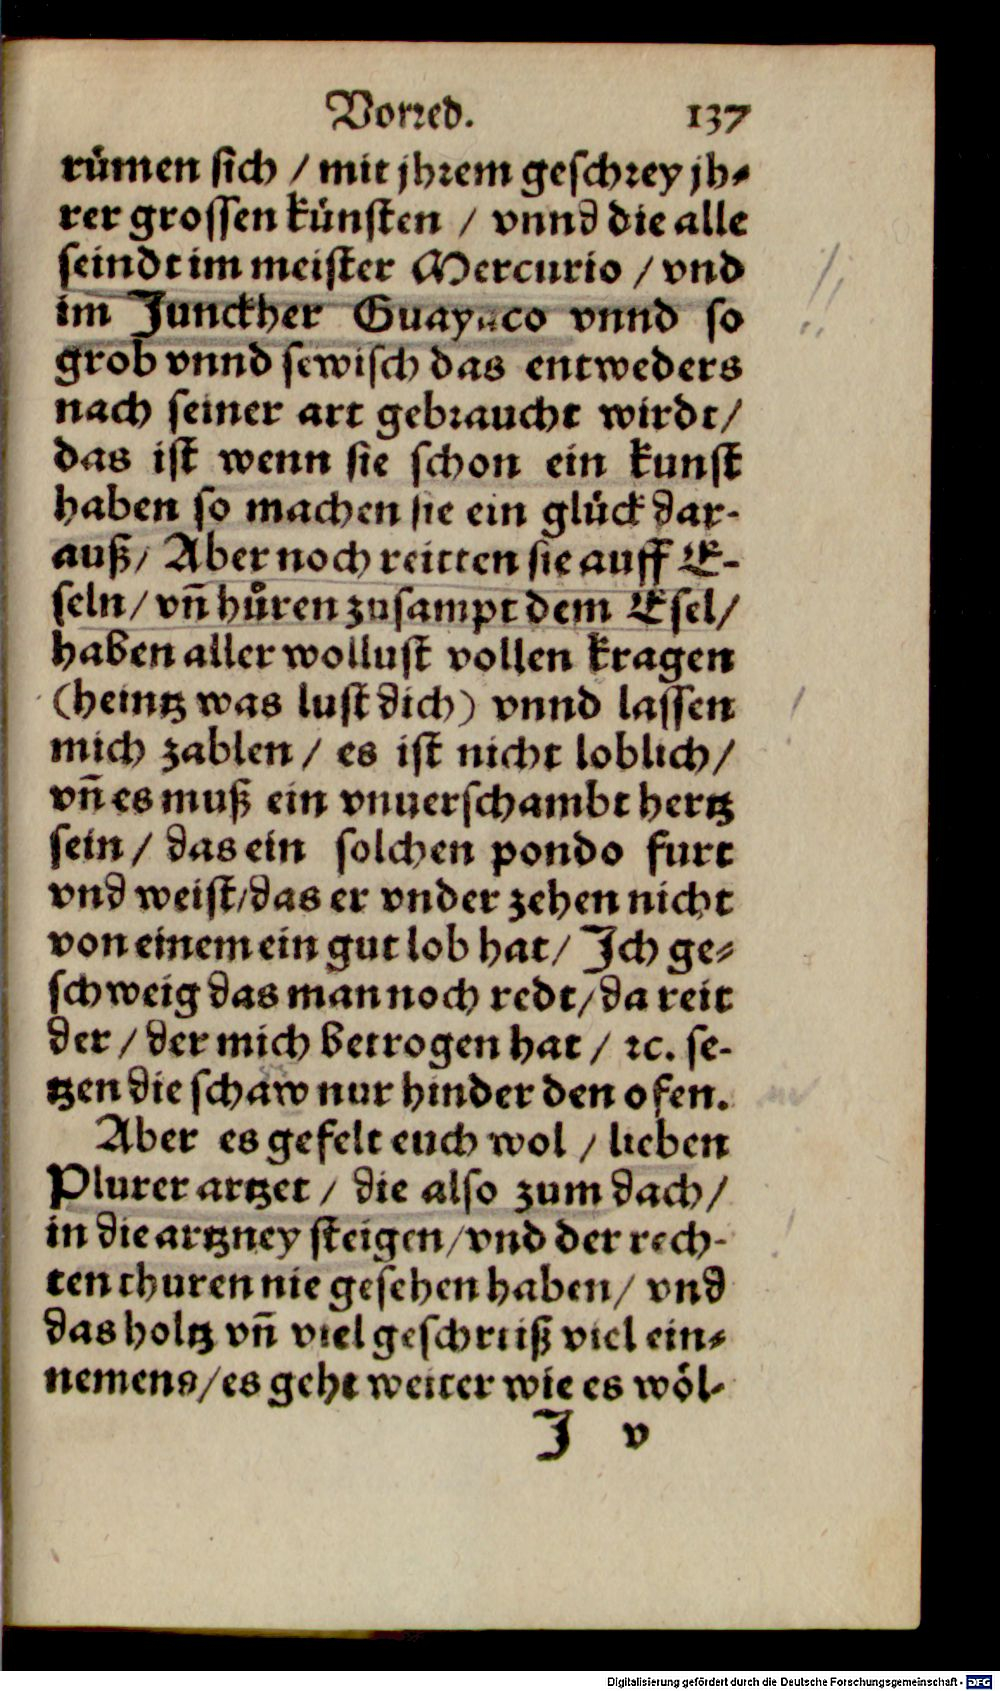 Vorred. 137
rümen sich / mit jhrem geschrey jh⸗
rer grossen künsten / vnnd die alle
seindt im meister Mercurio / vnd
im Junckher Guayaco vnnd so
grob vnnd sewisch das entweders
nach seiner art gebraucht wirdt /
das ist wenn sie schon ein kunst
haben so machen sie ein glück dar-
auß / Aber noch reitten sie auff E-
seln / vñ hůren zusampt dem Esel /
haben aller wollust vollen kragen
(heintz was lust dich) vnnd lassen
mich zablen / es ist nicht loblich /
vñ es muß ein vnuerschambt hertz
sein / das ein solchen pondo furt
vnd weist / das er vnder zehen nicht
von einem ein gut lob hat / Ich ge⸗
schweig das man noch redt / da reit
der / der mich betrogen hat / ꝛc. se-
tzen die schaw nur hinder den ofen.
Aber es gefelt euch wol / lieben
Plurer artzet / die also zum dach /
in die artzney steigen / vnd der rech-
ten thuren nie gesehen haben / vnd
das holtz vñ viel geschriß viel ein⸗
nemens / es geht weiter wie es wöl-
J v
Digitalisierung gefördert durch die Deutsche Forschungsgemeinschaft - DFG